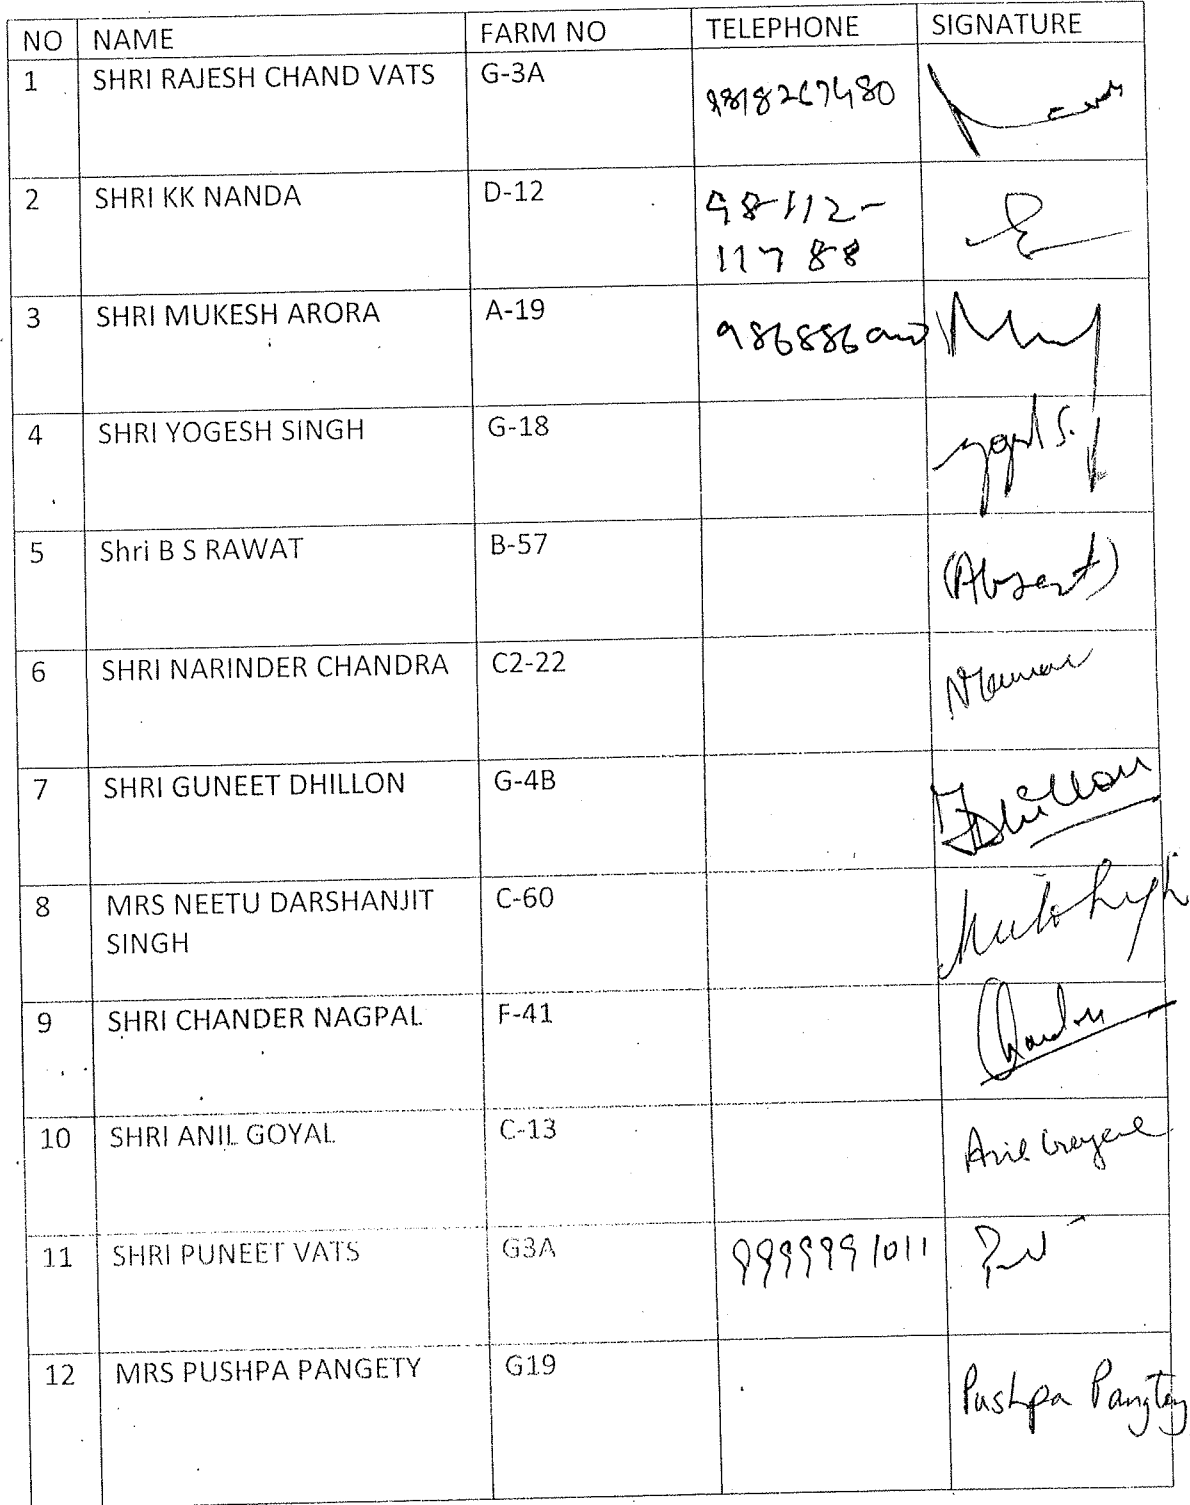 NO NAME FARM NO TELEPHONE SIGNATURE
1 SHRI RAJESH CHAND VATS G-3A 9818267480
2 SHRI KK NANDA D-12 98-112-
11788
3 SHRI MUKESH ARORA A-19
4 SHRI YOGESH SINGH G-18
5 Shri B S RAWAT B-57 (Absent)
6 SHRI NARINDER CHANDRA C2-22
7 SHRI GUNEET DHILLON G-4B Dhillon
8 MRS NEETU DARSHANJIT C-60
SINGH
9 SHRI CHANDER NAGPAL F-41
10 SHRI ANIL GOYAL C-13
11 SHRI PUNEET VATS G3A 9999991011
12 MRS PUSHPA PANGETY G19 Pushpa Pangtey